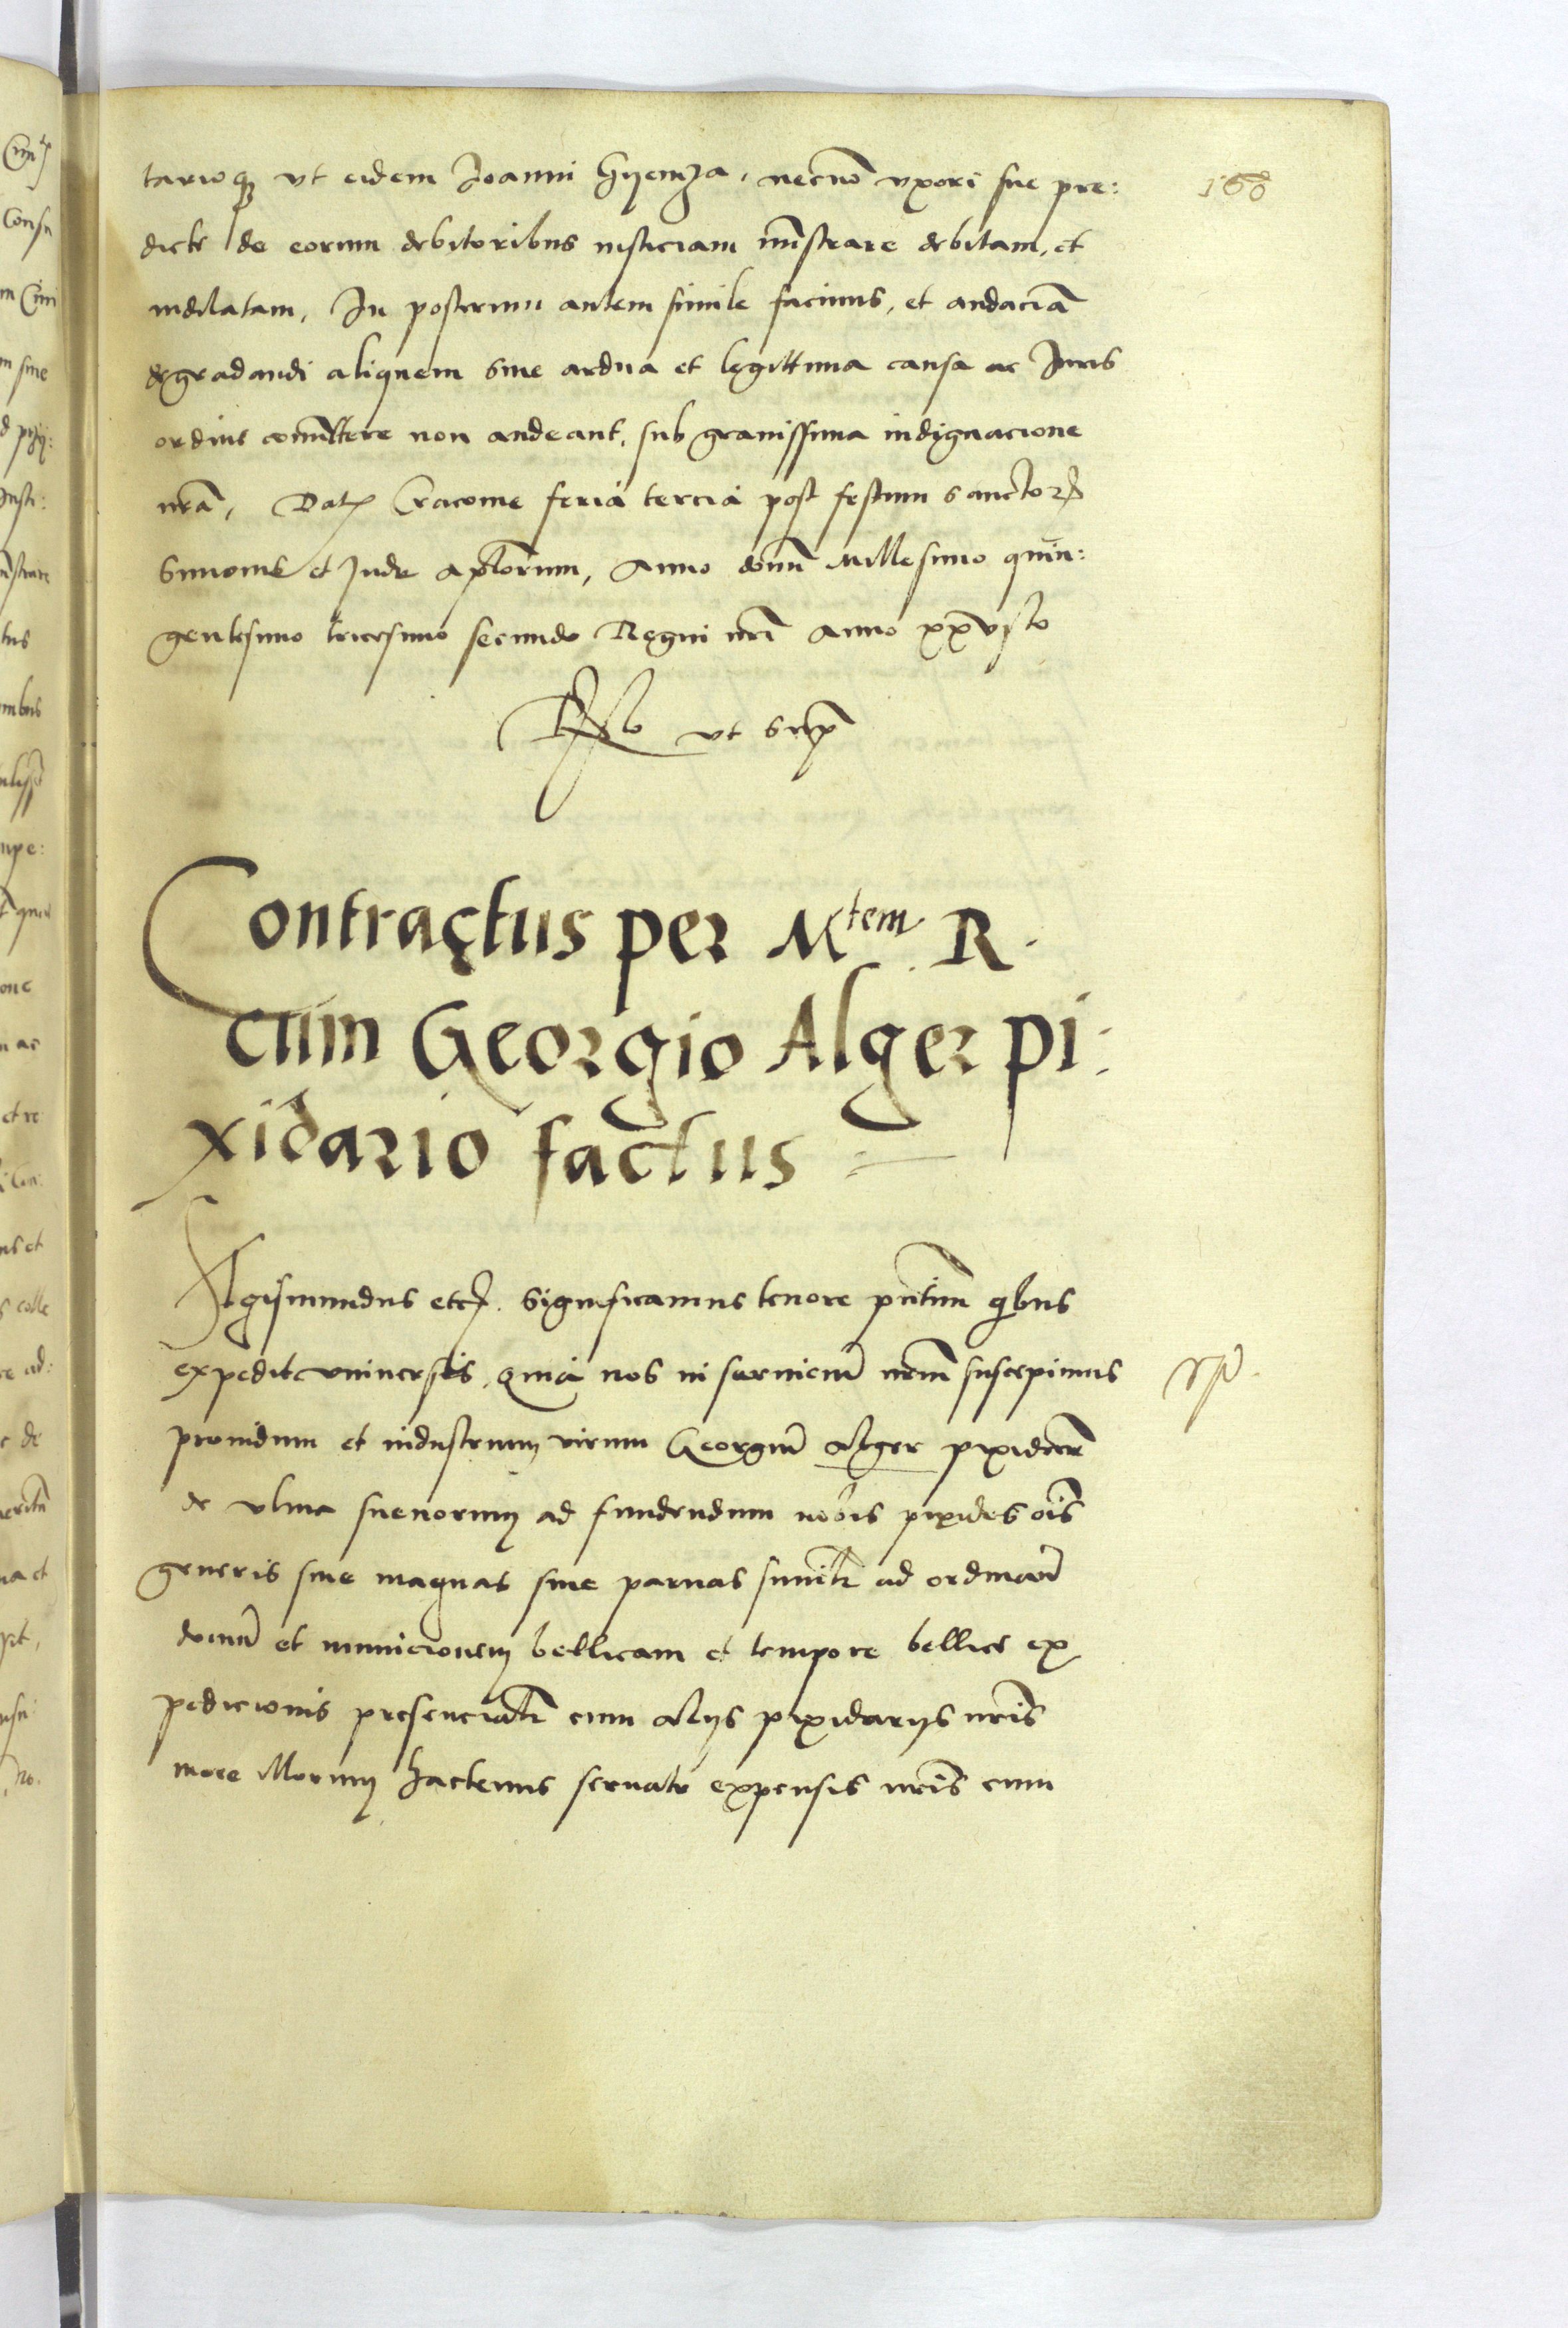 160
tarioque vt eidem Joanni Hyemza, necnõ vxori sue pre:
dicte de eorum debitoribus iusticiam mĩstrare debitam, et
indilatam, In posterum autem simile facimus, et audaciã
degradandi aliquem sine ardua et legittima causa ac Juris
ordine comittere non audeant, sub grauissima indignacione
nrã, Dat Cracouie feria tercia post festum sanctor
Simonis et Jude apłorum, Anno domĩ Millesimo quin:
gentesimo tricesimo secundo Regni nrĩ Anno xxvisto
vt sup
Contractus per Mtem R.
cum Georgio Alger pi:
xidario factus
Sigismundus etc. Significamus tenore pntium qbus
expedit vniuersis, quia nos in seruiciũ nrm suscepimus
prouidum et industrium virum Georgiũ Alger pixidariũ
de vlma sueuorum ad fundendum nobis pixides ois
generis siue magnas siue paruas similr ad ordinaciõ
domũ et municionem bellicam et tempore bellice ex
pedicionis presencialr cum alijs pixidarijs nris
more illorum hactenus seruato expensis nris cum